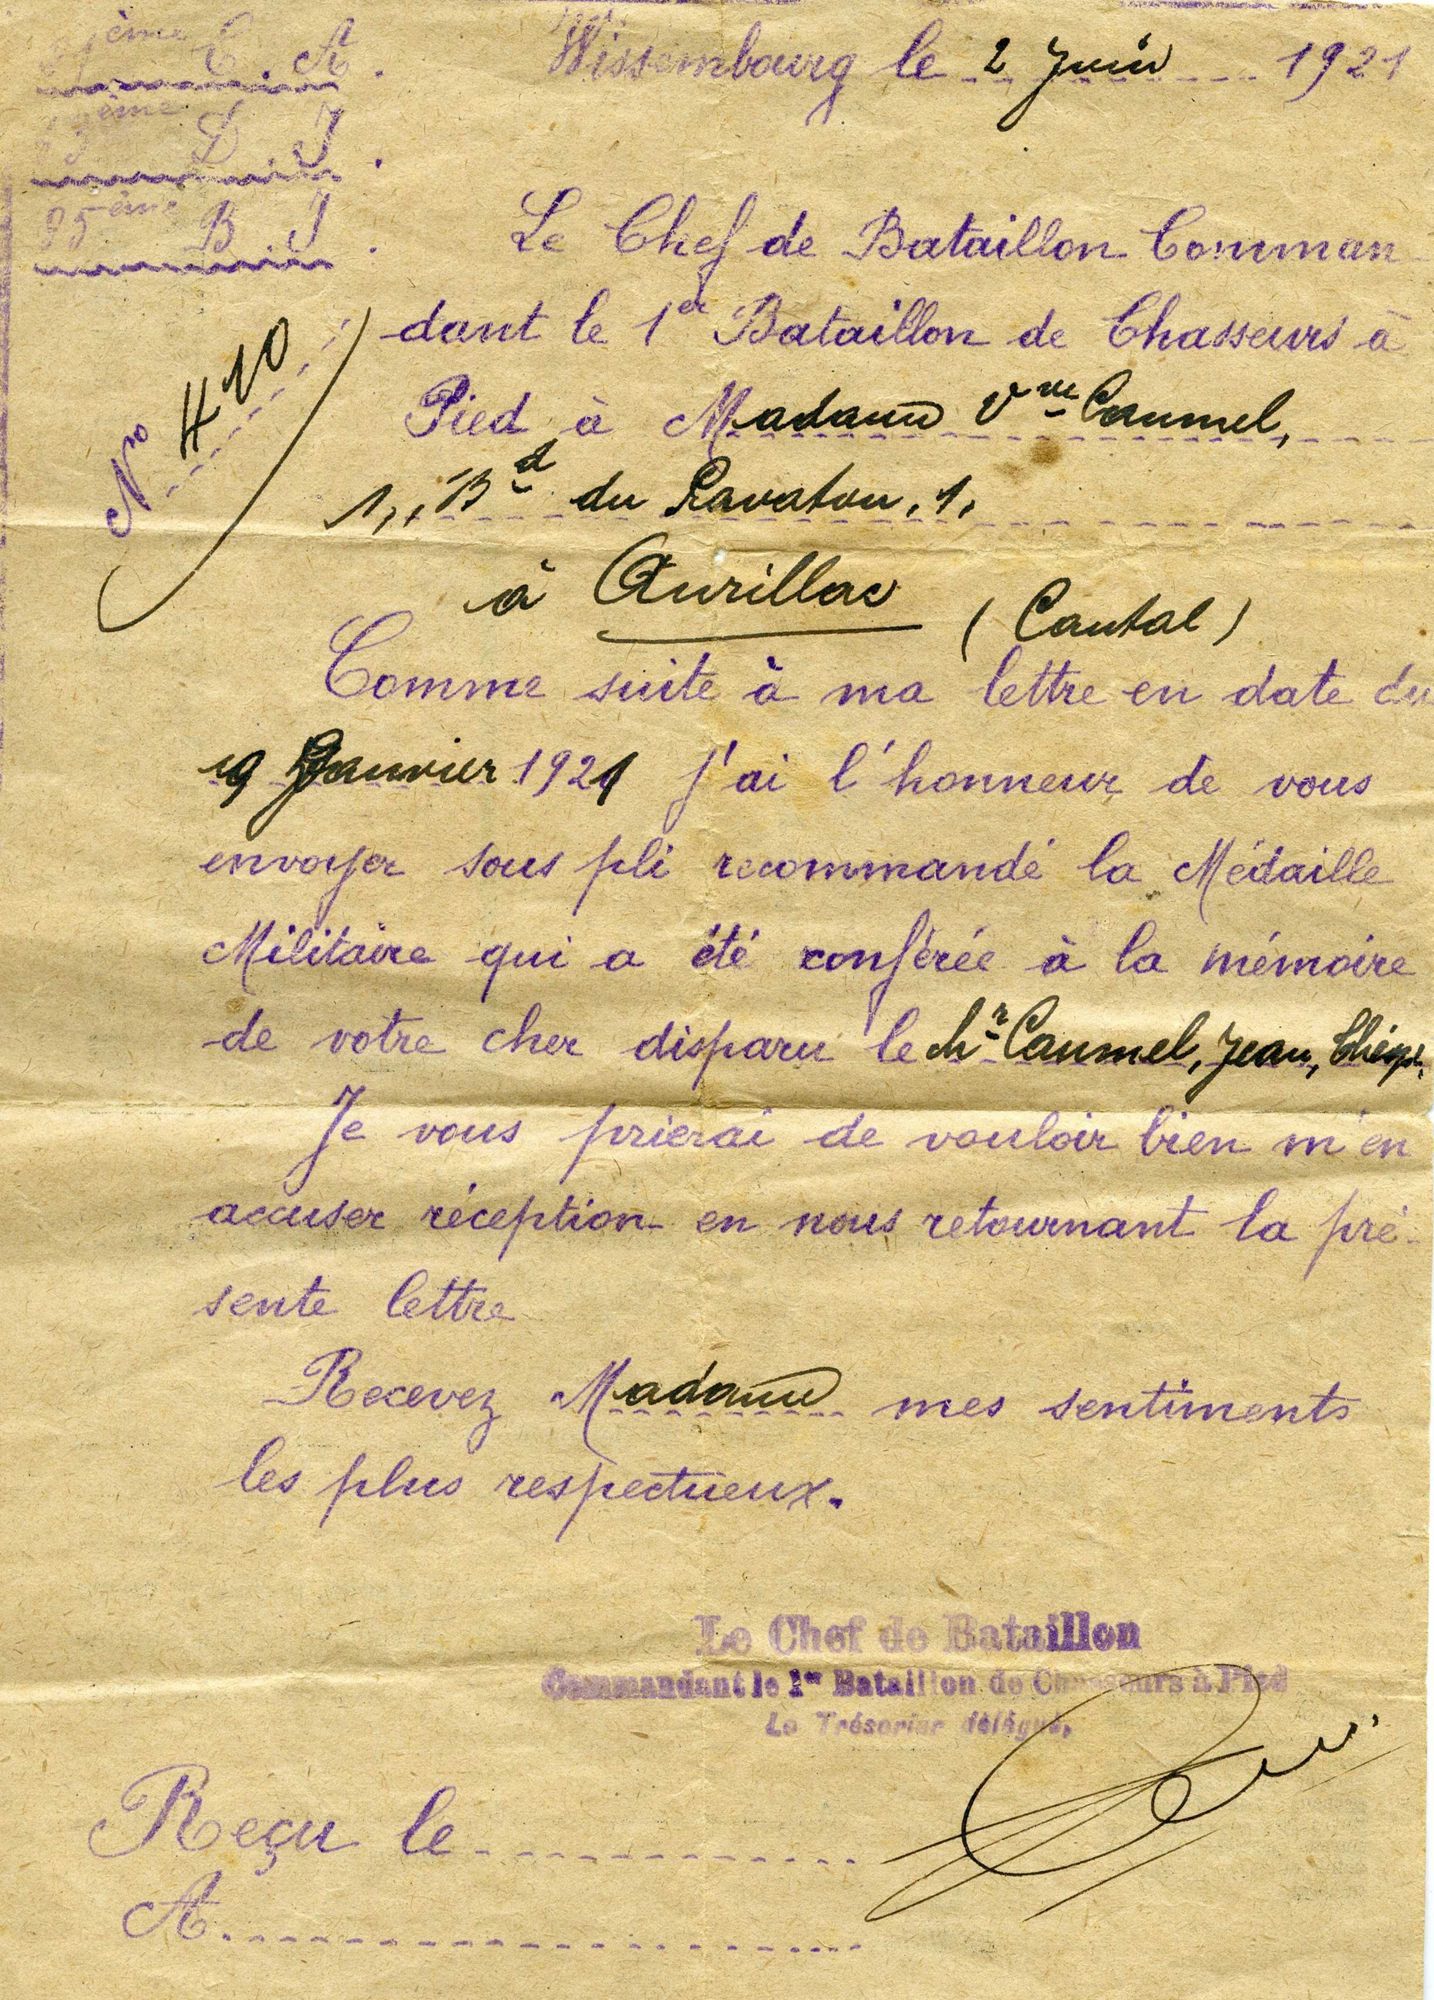 ème C. A.
Wissembourg le 2 Juin 1921
ème D. I.
ème B. I.
Le Chef de Bataillon Comman-
dant le 1er Bataillon de Chasseurs à
Pied à Madame Vve Caumel,
N° 410
1, Bd du Pavatou, 1,
à Aurillac (Cantal)
Comme suite à ma lettre en date du
19 Janvier 1921 j'ai l'honneur de vous
envoyer sous pli recommandé la Médaille
Militaire qui a été conférée à la mémoire
de votre cher disparu le Caumel, Jean,
Je vous prierai de vouloir bien m'en
accuser réception en nous retournant la pré-
sente lettre
Recevez Madame mes sentiments
les plus respectueux.
Le Chef de Bataillon
Commandant le 1er Bataillon de Chasseurs à Pied
Le Trésorier délégué,
Reçu le
A